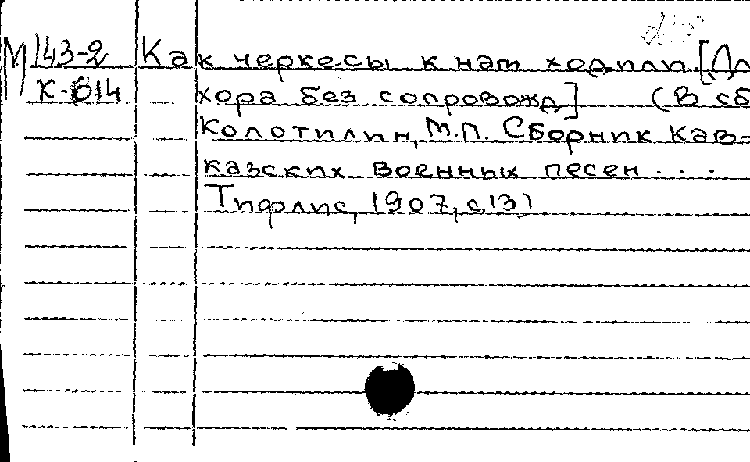 М 143-2 Как черкесы к нам ходили. [Дл
К-614 хора без сопровожд] (В сб
Колотилин, М.П. Сборник Кав-
казских военных песен...
Тифлис, 1907, с.13)